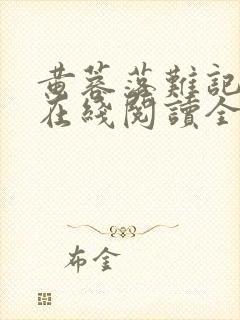 黄蓉落難記
在綫閱讀全
布金